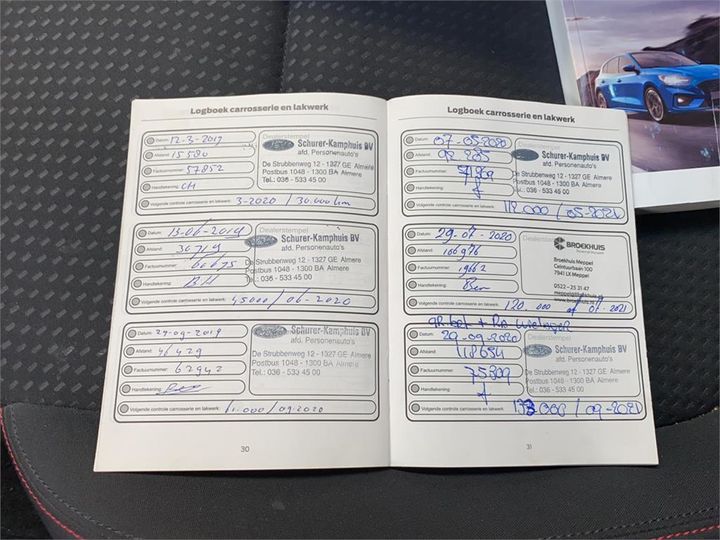 Logboek carrosserie en lakwerk
Datum: 12-3-2019
Afstand: 15580
Factuurnummer: 57852
Handtekening: CH
Volgende controle carrosserie en lakwerk: 3-2020 / 30.000 km
Dealerstempel
Schurer-Kamphuis BV
afd. Personenauto's
De Strubbenweg 12 - 1327 GE Almere
Postbus 1048 - 1300 BA Almere
Tel.: 036 - 533 45 00
Datum: 13-06-2019
Afstand: 30719
Factuurnummer: 60675
Handtekening: BH
Volgende controle carrosserie en lakwerk: 45000 / 06-2020
Dealerstempel
Schurer-Kamphuis BV
afd. Personenauto's
De Strubbenweg 12 - 1327 GE Almere
Postbus 1048 - 1300 BA Almere
Tel.: 036 - 533 45 00
Datum: 27-09-2019
Afstand: 46429
Factuurnummer: 62942
Handtekening:
Volgende controle carrosserie en lakwerk: 61.000 / 09-2020
Schurer-Kamphuis BV
afd. Personenauto's
De Strubbenweg 12 - 1327 GE Almere
Postbus 1048 - 1300 BA Almere
Tel.: 036 - 533 45 00
30
Logboek carrosserie en lakwerk
Datum: 07-05-2020
Afstand: 235
Factuurnummer: 71809
Handtekening:
Volgende controle carrosserie en lakwerk: 112.000 / 05-2021
Dealerstempel
Schurer-Kamphuis BV
afd. Personenauto's
De Strubbenweg 12 - 1327 GE Almere
Postbus 1048 - 1300 BA Almere
Tel.: 036 - 533 45 00
Datum: 29-07-2020
Afstand: 106976
Factuurnummer: 19662
Handtekening:
Volgende controle carrosserie en lakwerk: 120.000 of 07-2021
Dealerstempel
BROEKHUIS
Broekhuis Meppel
Ceintuurbaan 100
7941 LX Meppel
0522 - 25 31 47
Datum: 29-09-2020
Afstand: 118654
Factuurnummer: 75809
Handtekening:
Volgende controle carrosserie en lakwerk: 000 / 09-2021
Dealerstempel
Schurer-Kamphuis BV
afd. Personenauto's
De Strubbenweg 12 - 1327 GE Almere
Postbus 1048 - 1300 BA Almere
Tel.: 036 - 533 45 00
31